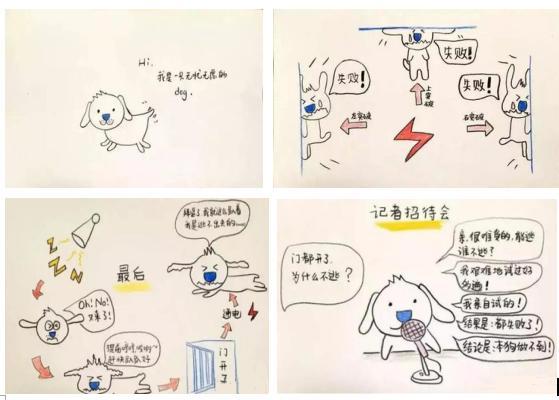 Hi.
我是一只无忧无虑的
dog.
失败!
失败!
失败!
上突破
左突破
右突破
最后
Oh! No!
又来了!
通电
门开了
记者招待会
门都开了,
为什么不逃?
亲,很难受的,能逃
谁不逃?
我艰难地试过好
多遍!
我亲自试的!
结果是:都失败了!
结论是:本狗做不到!